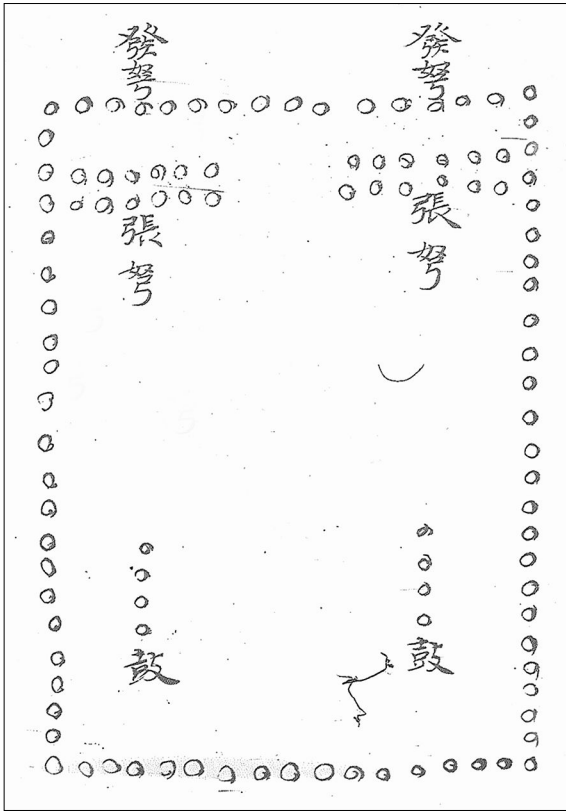 發弩
張弩
鼓
發弩
張弩
鼓